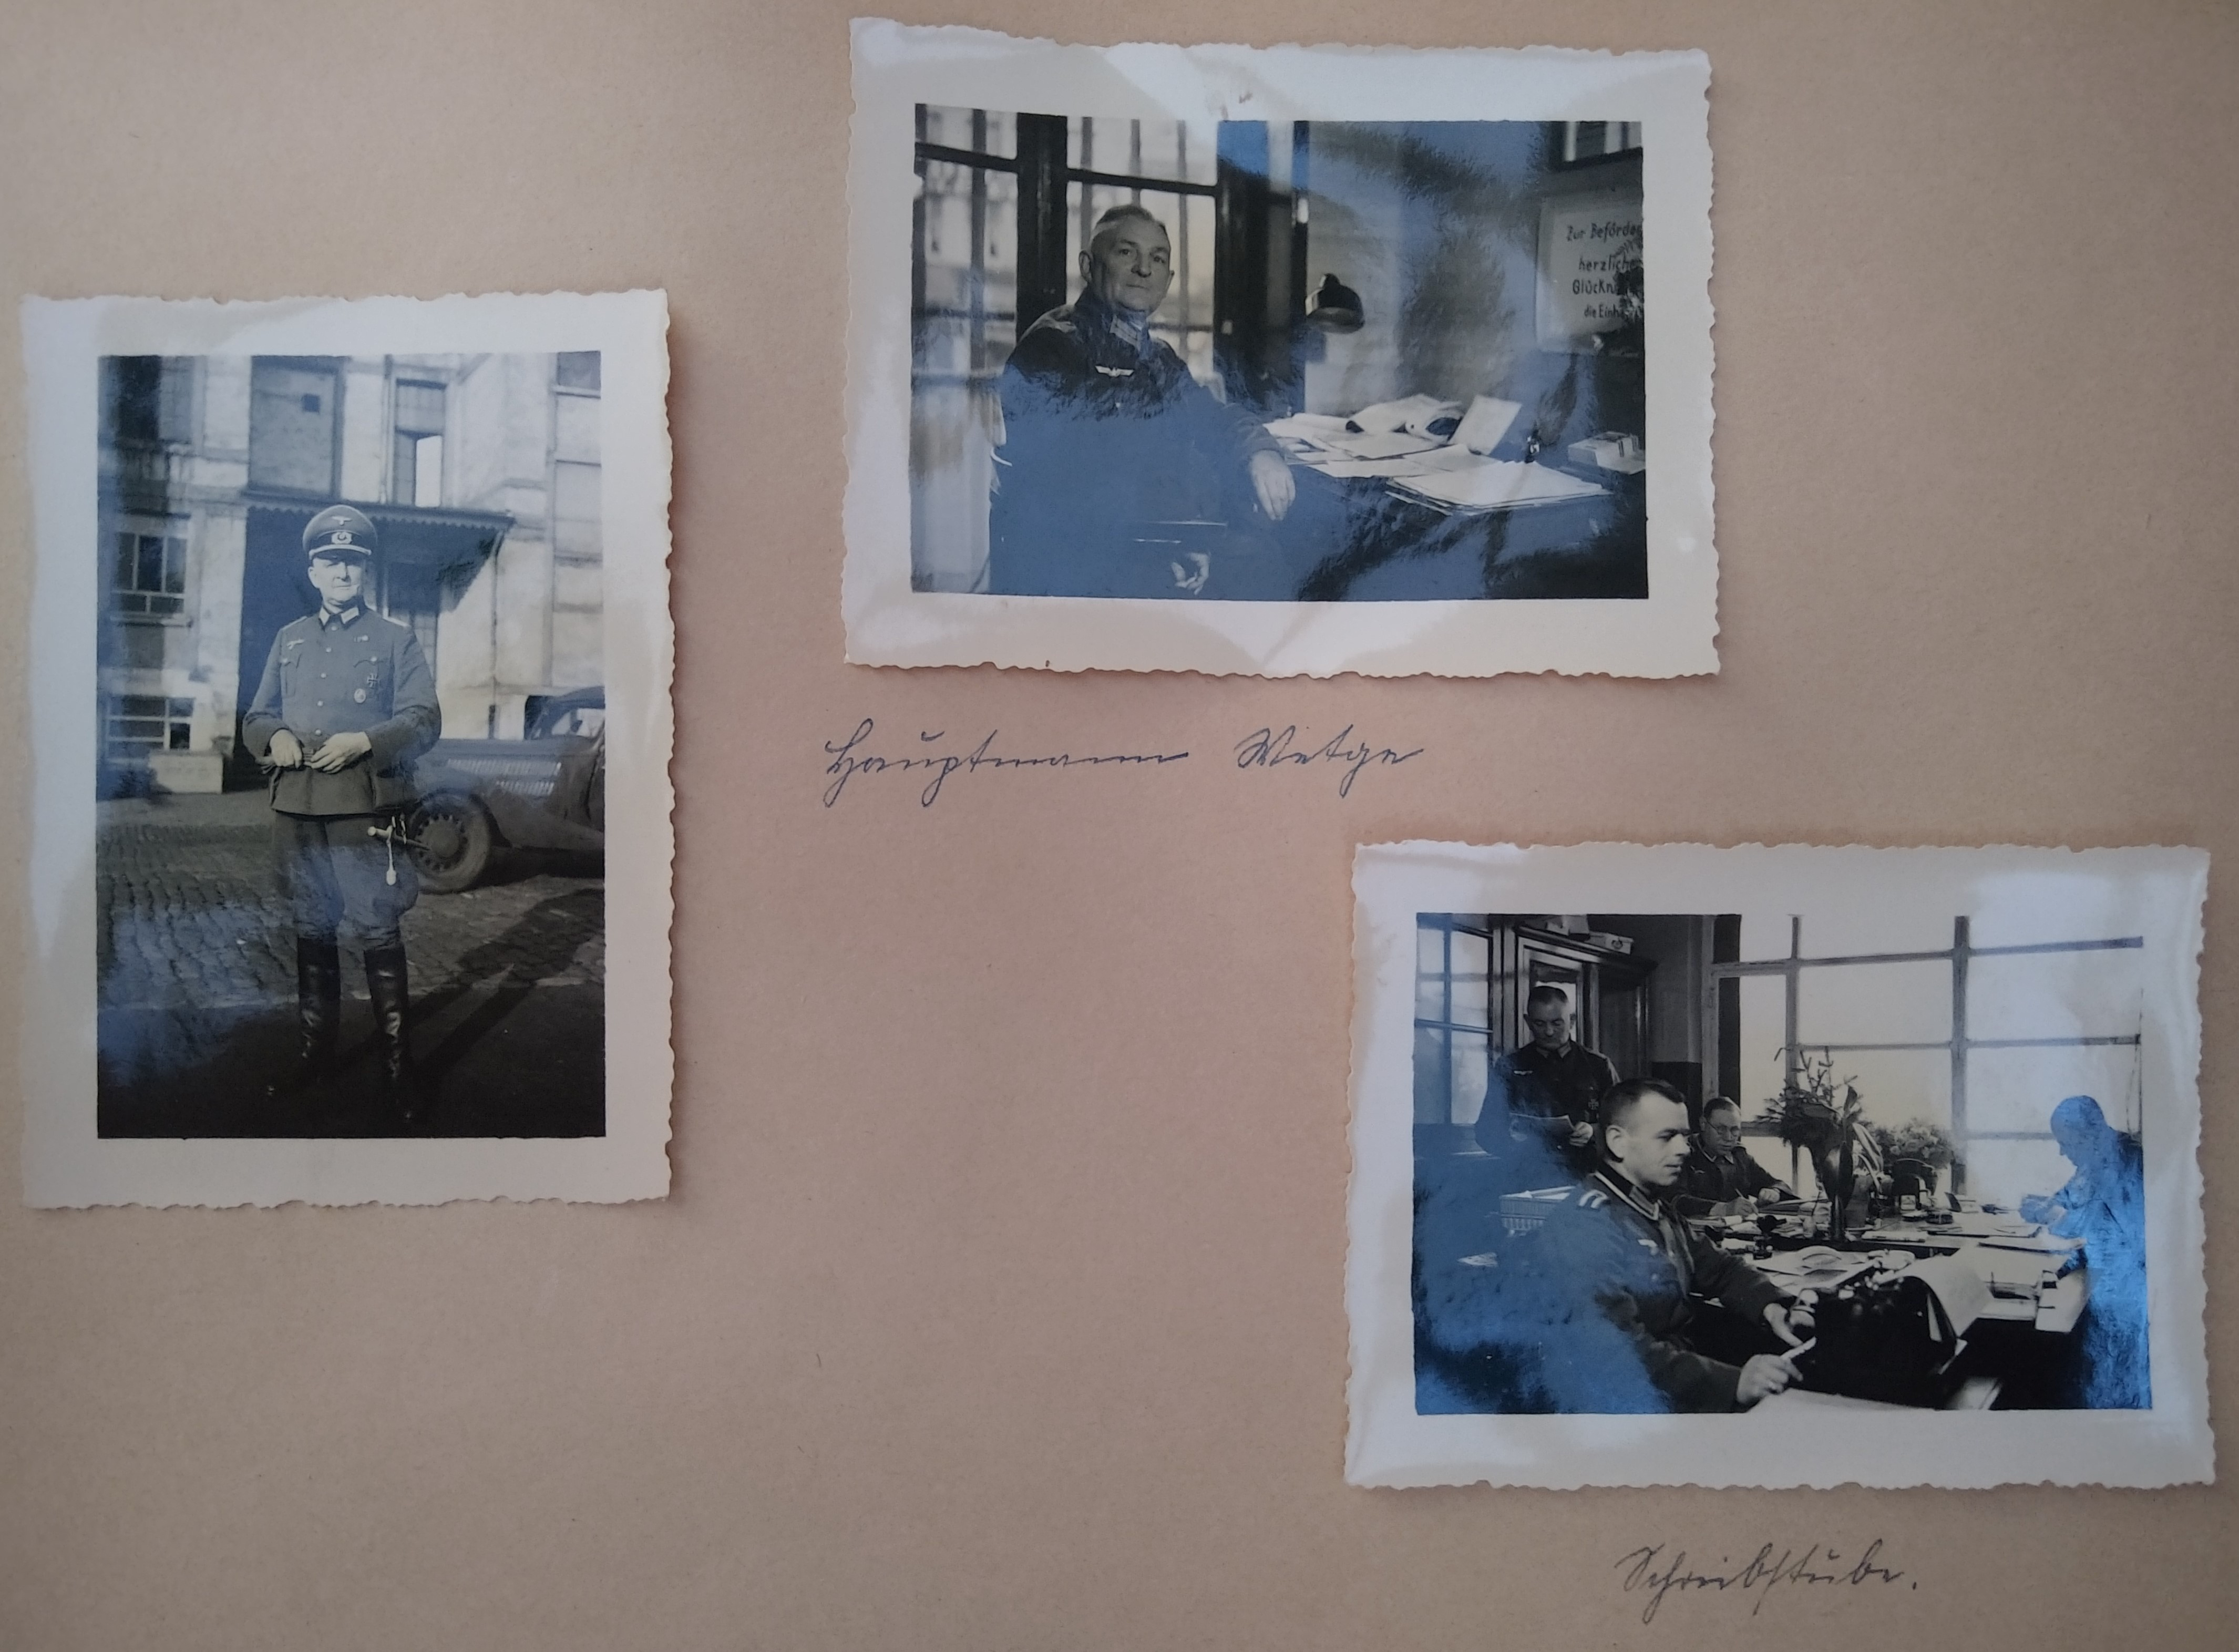 Zur Beförde
herzlich
Glückw
die Einh
Hauptmann Wetge
Schreibstube.